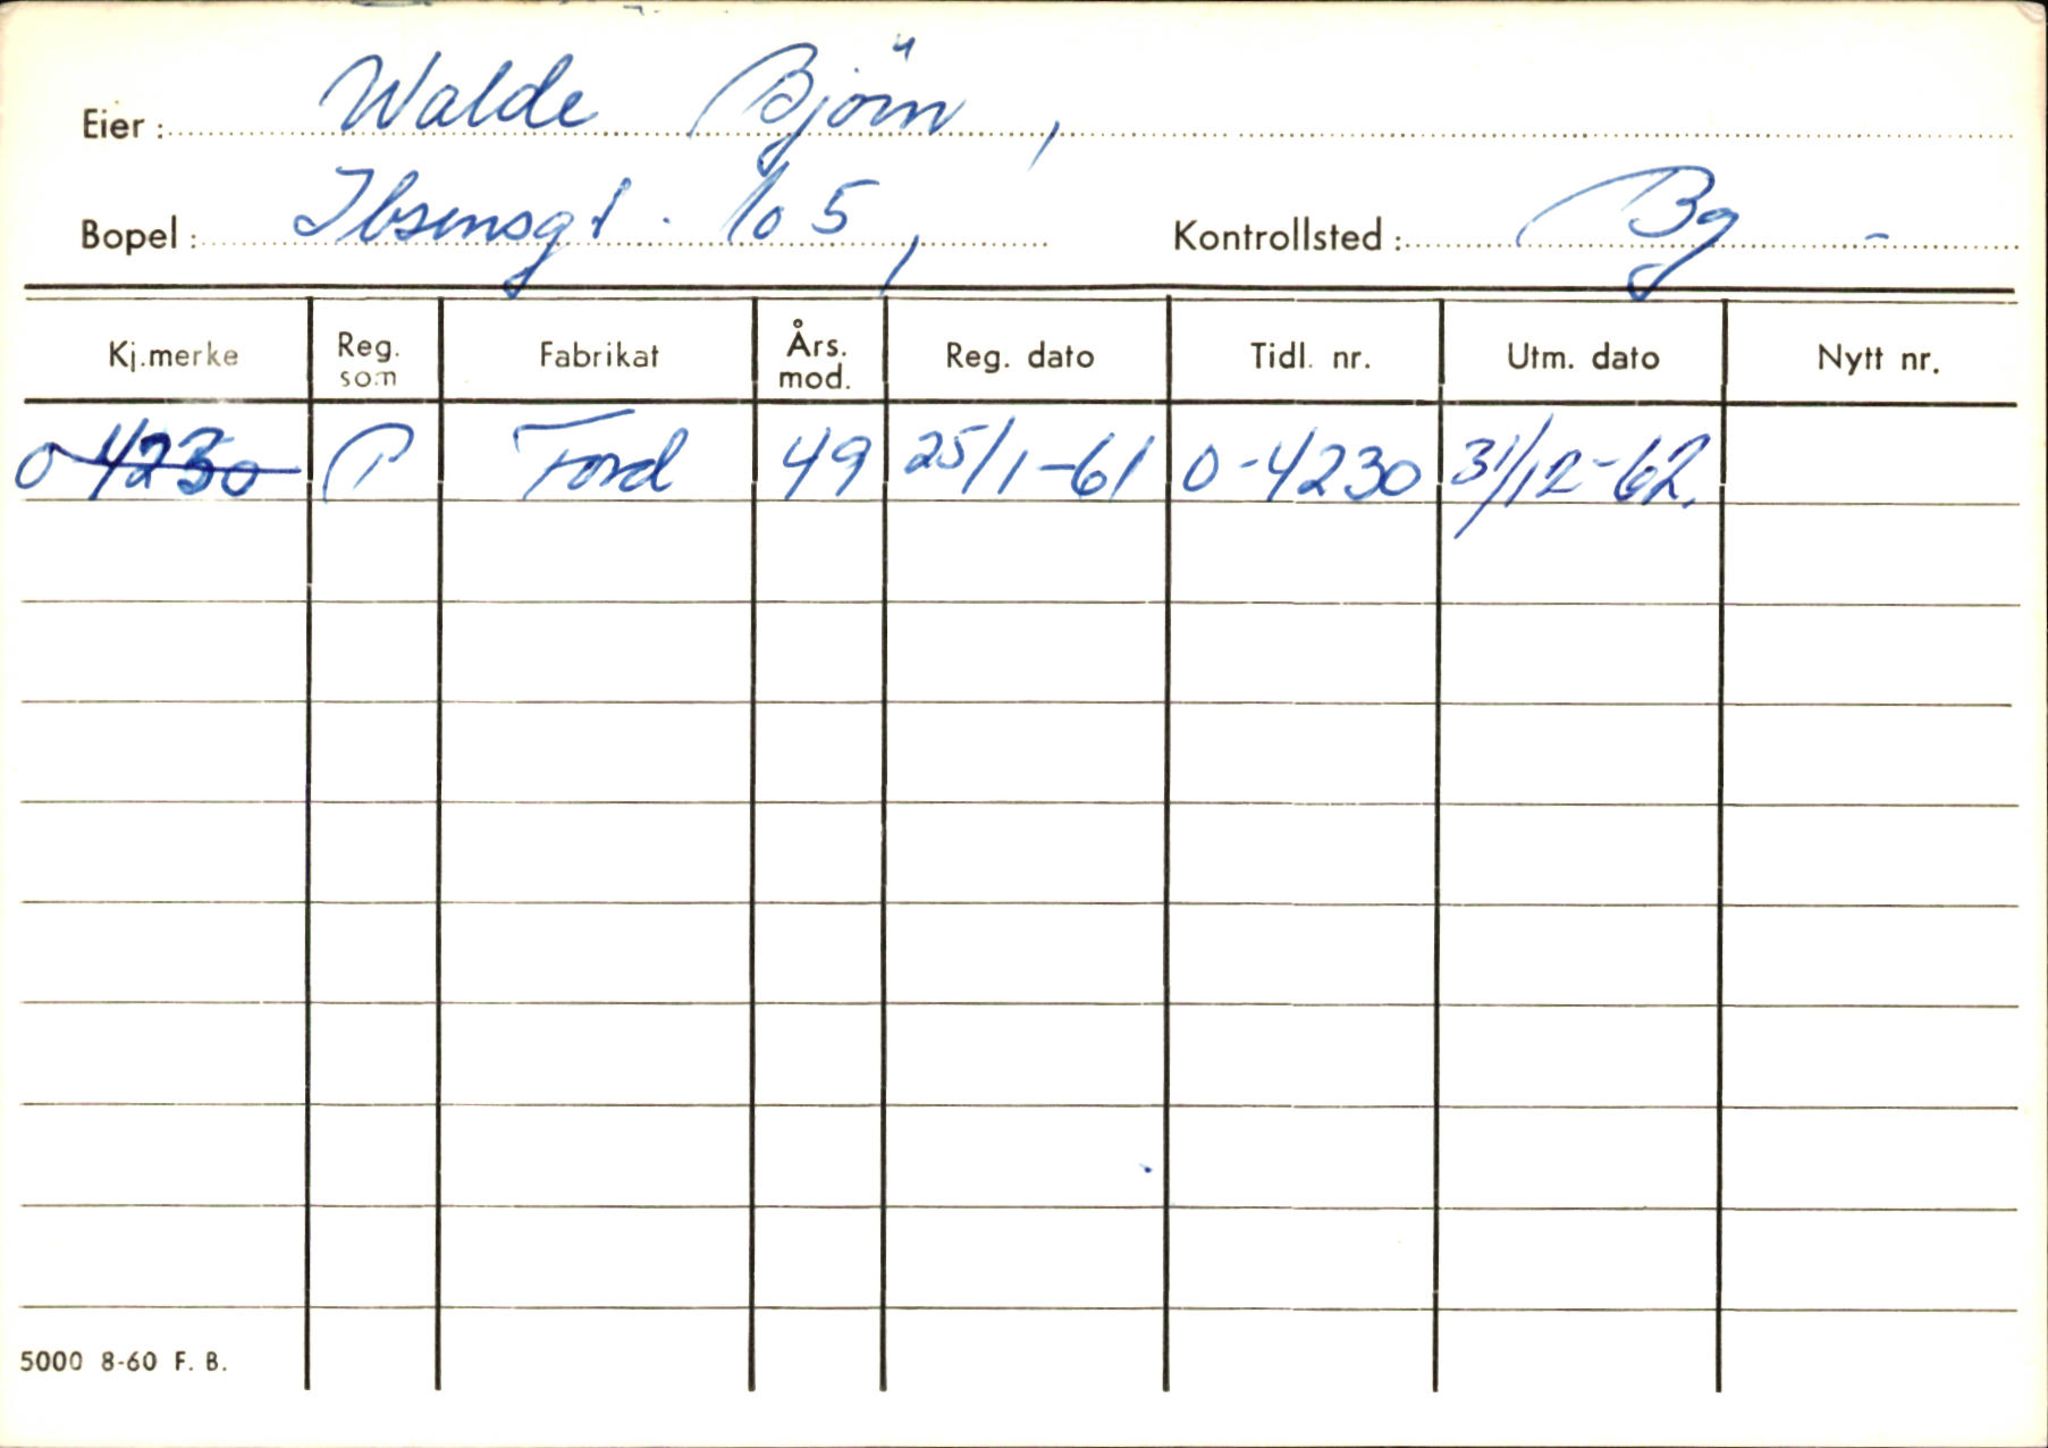 Eier: Walde Björn,
Bopel: Ibsensgt. 105, Kontrollsted: Bg -
Kj.merke Reg. som Fabrikat Års. mod. Reg. dato Tidl. nr. Utm. dato Nytt nr.
O 4230 P Ford 49 25/1-61 O-4230 31/12-62.
5000 8-60 F. B.